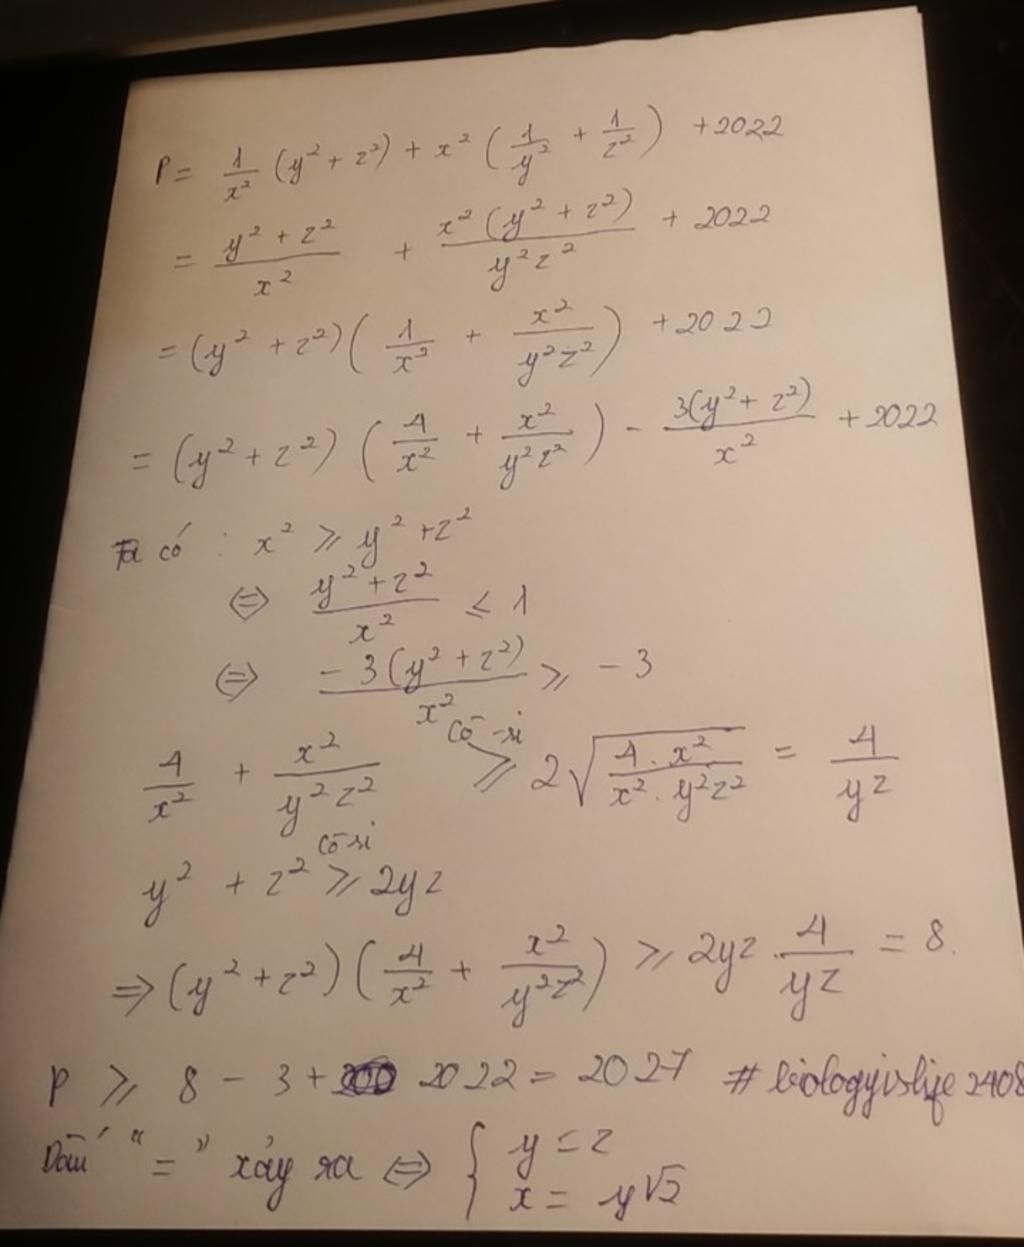 P = 1/x² (y² + z²) + x² (1/y² + 1/z²) + 2022
= (y² + z²)/x² + x² (y² + z²)/(y²z²) + 2022
= (y² + z²)(1/x² + x²/(y²z²)) + 2022
= (y² + z²) (4/x² + x²/(y²z²)) - 3(y² + z²)/x² + 2022
Ta có : x² ⩾ y² + z²
⇔ (y² + z²)/x² ≤ 1
⇔ -3(y² + z²)/x² ⩾ -3
4/x² + x²/(y²z²) ⩾ (Cô-si) 2√(4.x²/(x².y²z²)) = 4/(yz)
y² + z² ⩾ (Cô-si) 2yz
⇒ (y² + z²)(4/x² + x²/(y²z²)) ⩾ 2yz . 4/(yz) = 8.
P ⩾ 8 - 3 + 2022 = 2027 #biologyislife2408
Dấu "=" xảy ra ⇔ { y = z
x = y√2